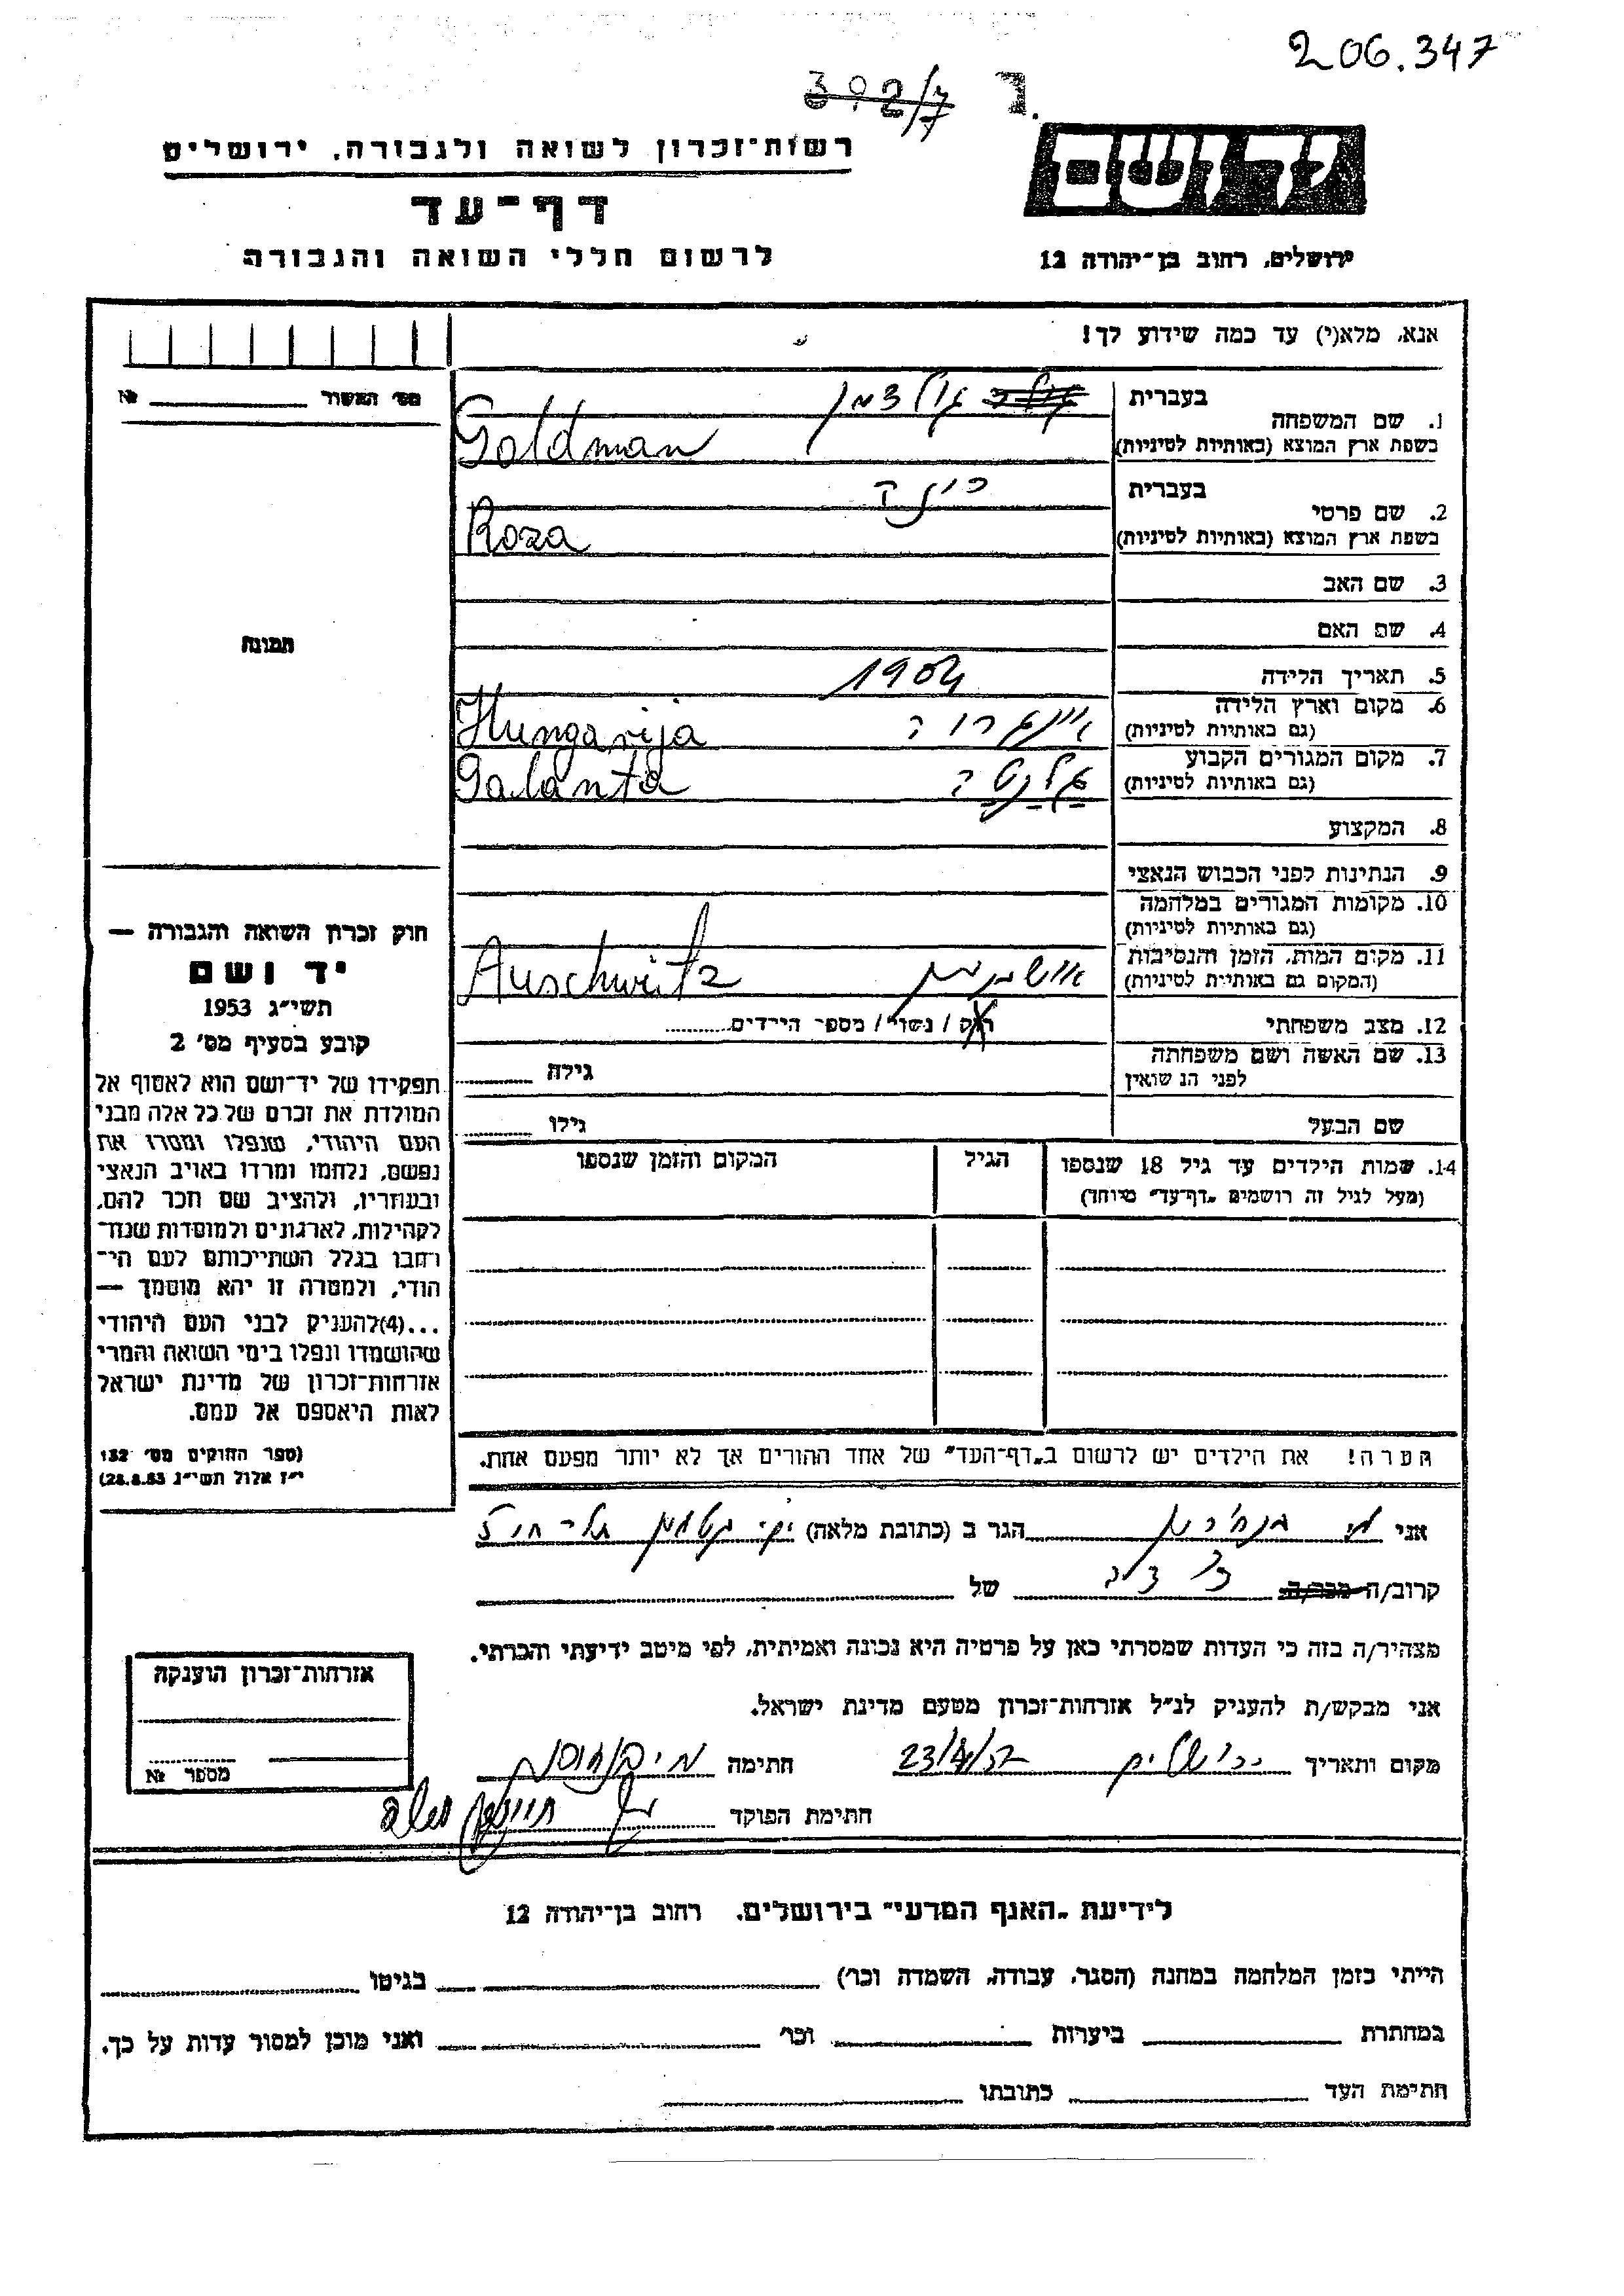 206.347
392/7
רשות־זכרון לשואה ולגבורה, ירושלים
יד ושם
דף־עד
לרשום חללי השואה והגבורה
ירושלים, רחוב בן־יהודה 12
אנא, מלא(י) עד כמה שידוע לך!
מס׳ האשור № 
1. שם המשפחה
בעברית גולדמן
בשפת ארץ המוצא (באותיות לטיניות) Goldman
2. שם פרטי
בעברית
בשפת ארץ המוצא (באותיות לטיניות) Roza
3. שם האב
4. שם האם
תמונה
5. תאריך הלידה 1904
6. מקום וארץ הלידה
(גם באותיות לטיניות) Hungarija
7. מקום המגורים הקבוע
(גם באותיות לטיניות) גלנטה Galanta
8. המקצוע
9. הנתינות לפני הכבוש הנאצי
10. מקומות המגורים במלחמה
(גם באותיות לטיניות)
11. מקום המות, הזמן והנסיבות
(המקום גם באותיות לטיניות) Auschwitz
12. מצב משפחתי רוק / נשוי / מספר הילדים
13. שם האשה ושם משפחתה
לפני הנשואין גילה
שם הבעל גילו
14. שמות הילדים עד גיל 18 שנספו הגיל המקום והזמן שנספו
(מעל לגיל זה רושמים „דף־עד” מיוחד)
חוק זכרון השואה והגבורה —
יד ושם
תשי״ג 1953
קובע בסעיף מס׳ 2
תפקידו של יד־ושם הוא לאסוף אל
המולדת את זכרם של כל אלה מבני
העם היהודי, שנפלו ומסרו את
נפשם, נלחמו ומרדו באויב הנאצי
ובעוזריו, ולהציב שם וזכר להם,
לקהילות, לארגונים ולמוסדות שנח־
רבו בגלל השתייכותם לעם הי־
הודי, ולמטרה זו יהא מוסמך —
...(4)להעניק לבני העם היהודי
שהושמדו ונפלו בימי השואה והמרי
אזרחות־זכרון של מדינת ישראל
לאות היאספם אל עמם.
(ספר החוקים מס׳ 132
י״ז אלול תשי״ג 28.8.53)
הערה! את הילדים יש לרשום ב„דף־העד” של אחד ההורים אך לא יותר מפעם אחת.
אני הגר ב (כתובת מלאה)
קרוב/ה מכר/ה של
מצהיר/ה בזה כי העדות שמסרתי כאן על פרטיה היא נכונה ואמיתית, לפי מיטב ידיעתי והכרתי.
אני מבקש/ת להעניק לנ״ל אזרחות־זכרון מטעם מדינת ישראל.
מקום ותאריך ירושלים חתימה
חתימת הפוקד
אזרחות־זכרון הוענקה
מספר №
לידיעת „האגף המדעי” בירושלים, רחוב בן־יהודה 12
הייתי בזמן המלחמה במחנה (הסגר, עבודה, השמדה וכו׳) בגיטו
במחתרת ביערות וכו׳ ואני מוכן למסור עדות על כך.
חתימת העד כתובתו